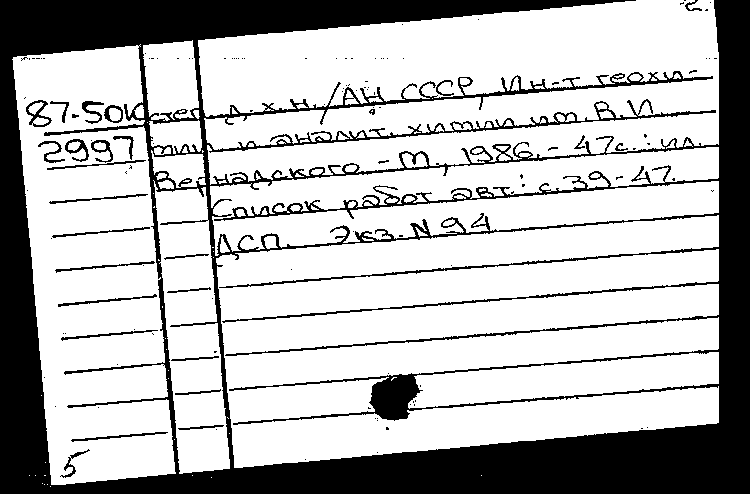 2.
87-50К степ. д. х. н. / АН СССР, Ин-т геохи-
2997 мии и аналит. химии им. В.И.
Вернадского. - М., 1986. - 47с.: ил.
Список работ авт.: с. 39-47.
ДСП. Экз. N 94
5